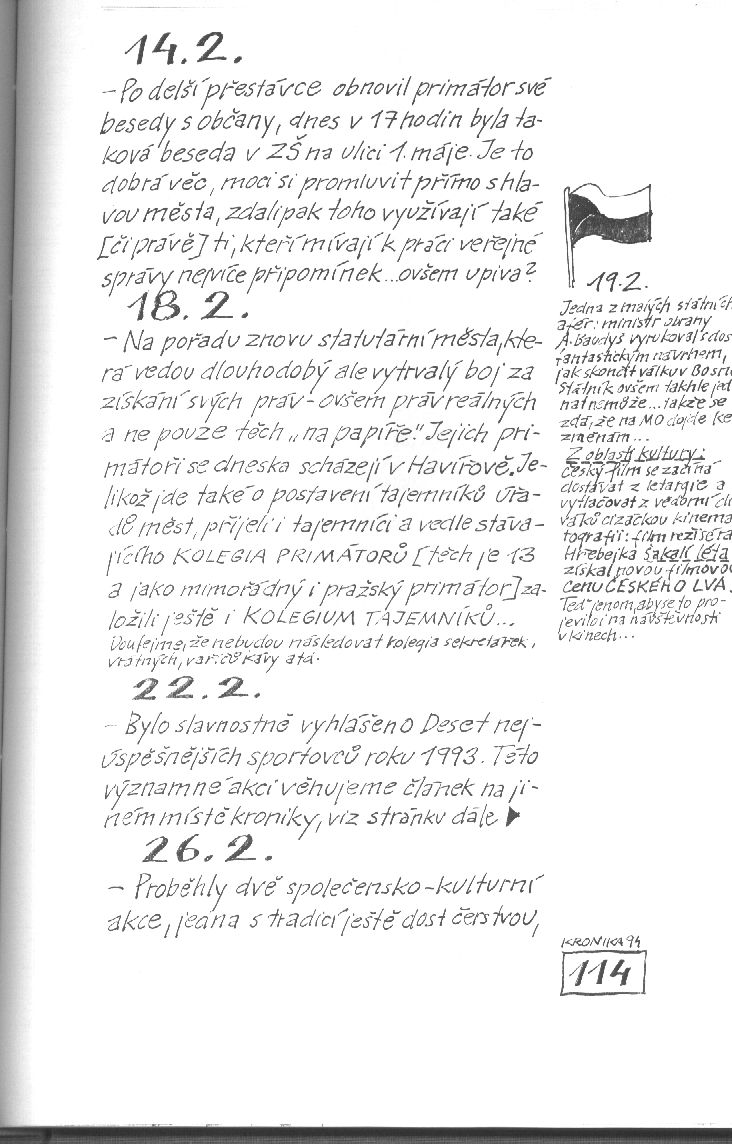 14.2.
– Po delší přestávce obnovil primátor své
besedy s občany, dnes v 17 hodin byla ta-
ková beseda v ZŠ na ulici 1. máje. Je to
dobrá věc, moci si promluvit přímo s hla-
vou města, zdalipak toho využívají také
[či právě] ti, kteří mívají k práci veřejné
správy nejvíce připomínek...ovšem u piva?
18.2.
– Na pořadu znovu statutární města, kte-
rá vedou dlouhodobý ale vytrvalý boj za
získání svých práv – ovšem práv reálných
a ne pouze těch „na papíře". Jejich pri-
mátoři se dneska scházejí v Havířově. Je-
likož jde také o postavení tajemníků úřa-
dů měst, přijeli i tajemníci a vedle stáva-
jícího KOLEGIA PRIMÁTORŮ [těch je 13
a jako mimořádný i pražský primátor] za-
ložili ještě i KOLEGIUM TAJEMNÍKŮ...
Doufejme, že nebudou následovat kolegia sekretářek,
vrátných, vařičů kávy atd.
22.2.
– Bylo slavnostně vyhlášeno Deset nej-
úspěšnějších sportovců roku 1993. Této
významné akci věnujeme článek na ji-
ném místě kroniky, viz stránku dále
26.2.
– Proběhly dvě společensko-kulturní
akce, jedna s tradicí ještě dost čerstvou,
19.2.
Jedna z malých státních
afér: ministr obrany
A. Baudyš vyrukoval s dos
fantastickým návrhem,
jak skončit válku v Bosn
Státník ovšem takhle jed
nat nemůže... takže se
zdá, že na MO dojde ke
změnám...
Z oblasti kultury:
český film se začíná
dostávat z letargie a
vytlačovat z vědomí di
váků cizáckou kinema
tografii: film režiséra
Hřebejka Šakalí léta
získal novou filmovou
cenu ČESKÉHO LVA.
Teď jenom, aby se to pro-
jevilo i na návštěvnosti
v kinech...
KRONIKA 94
114